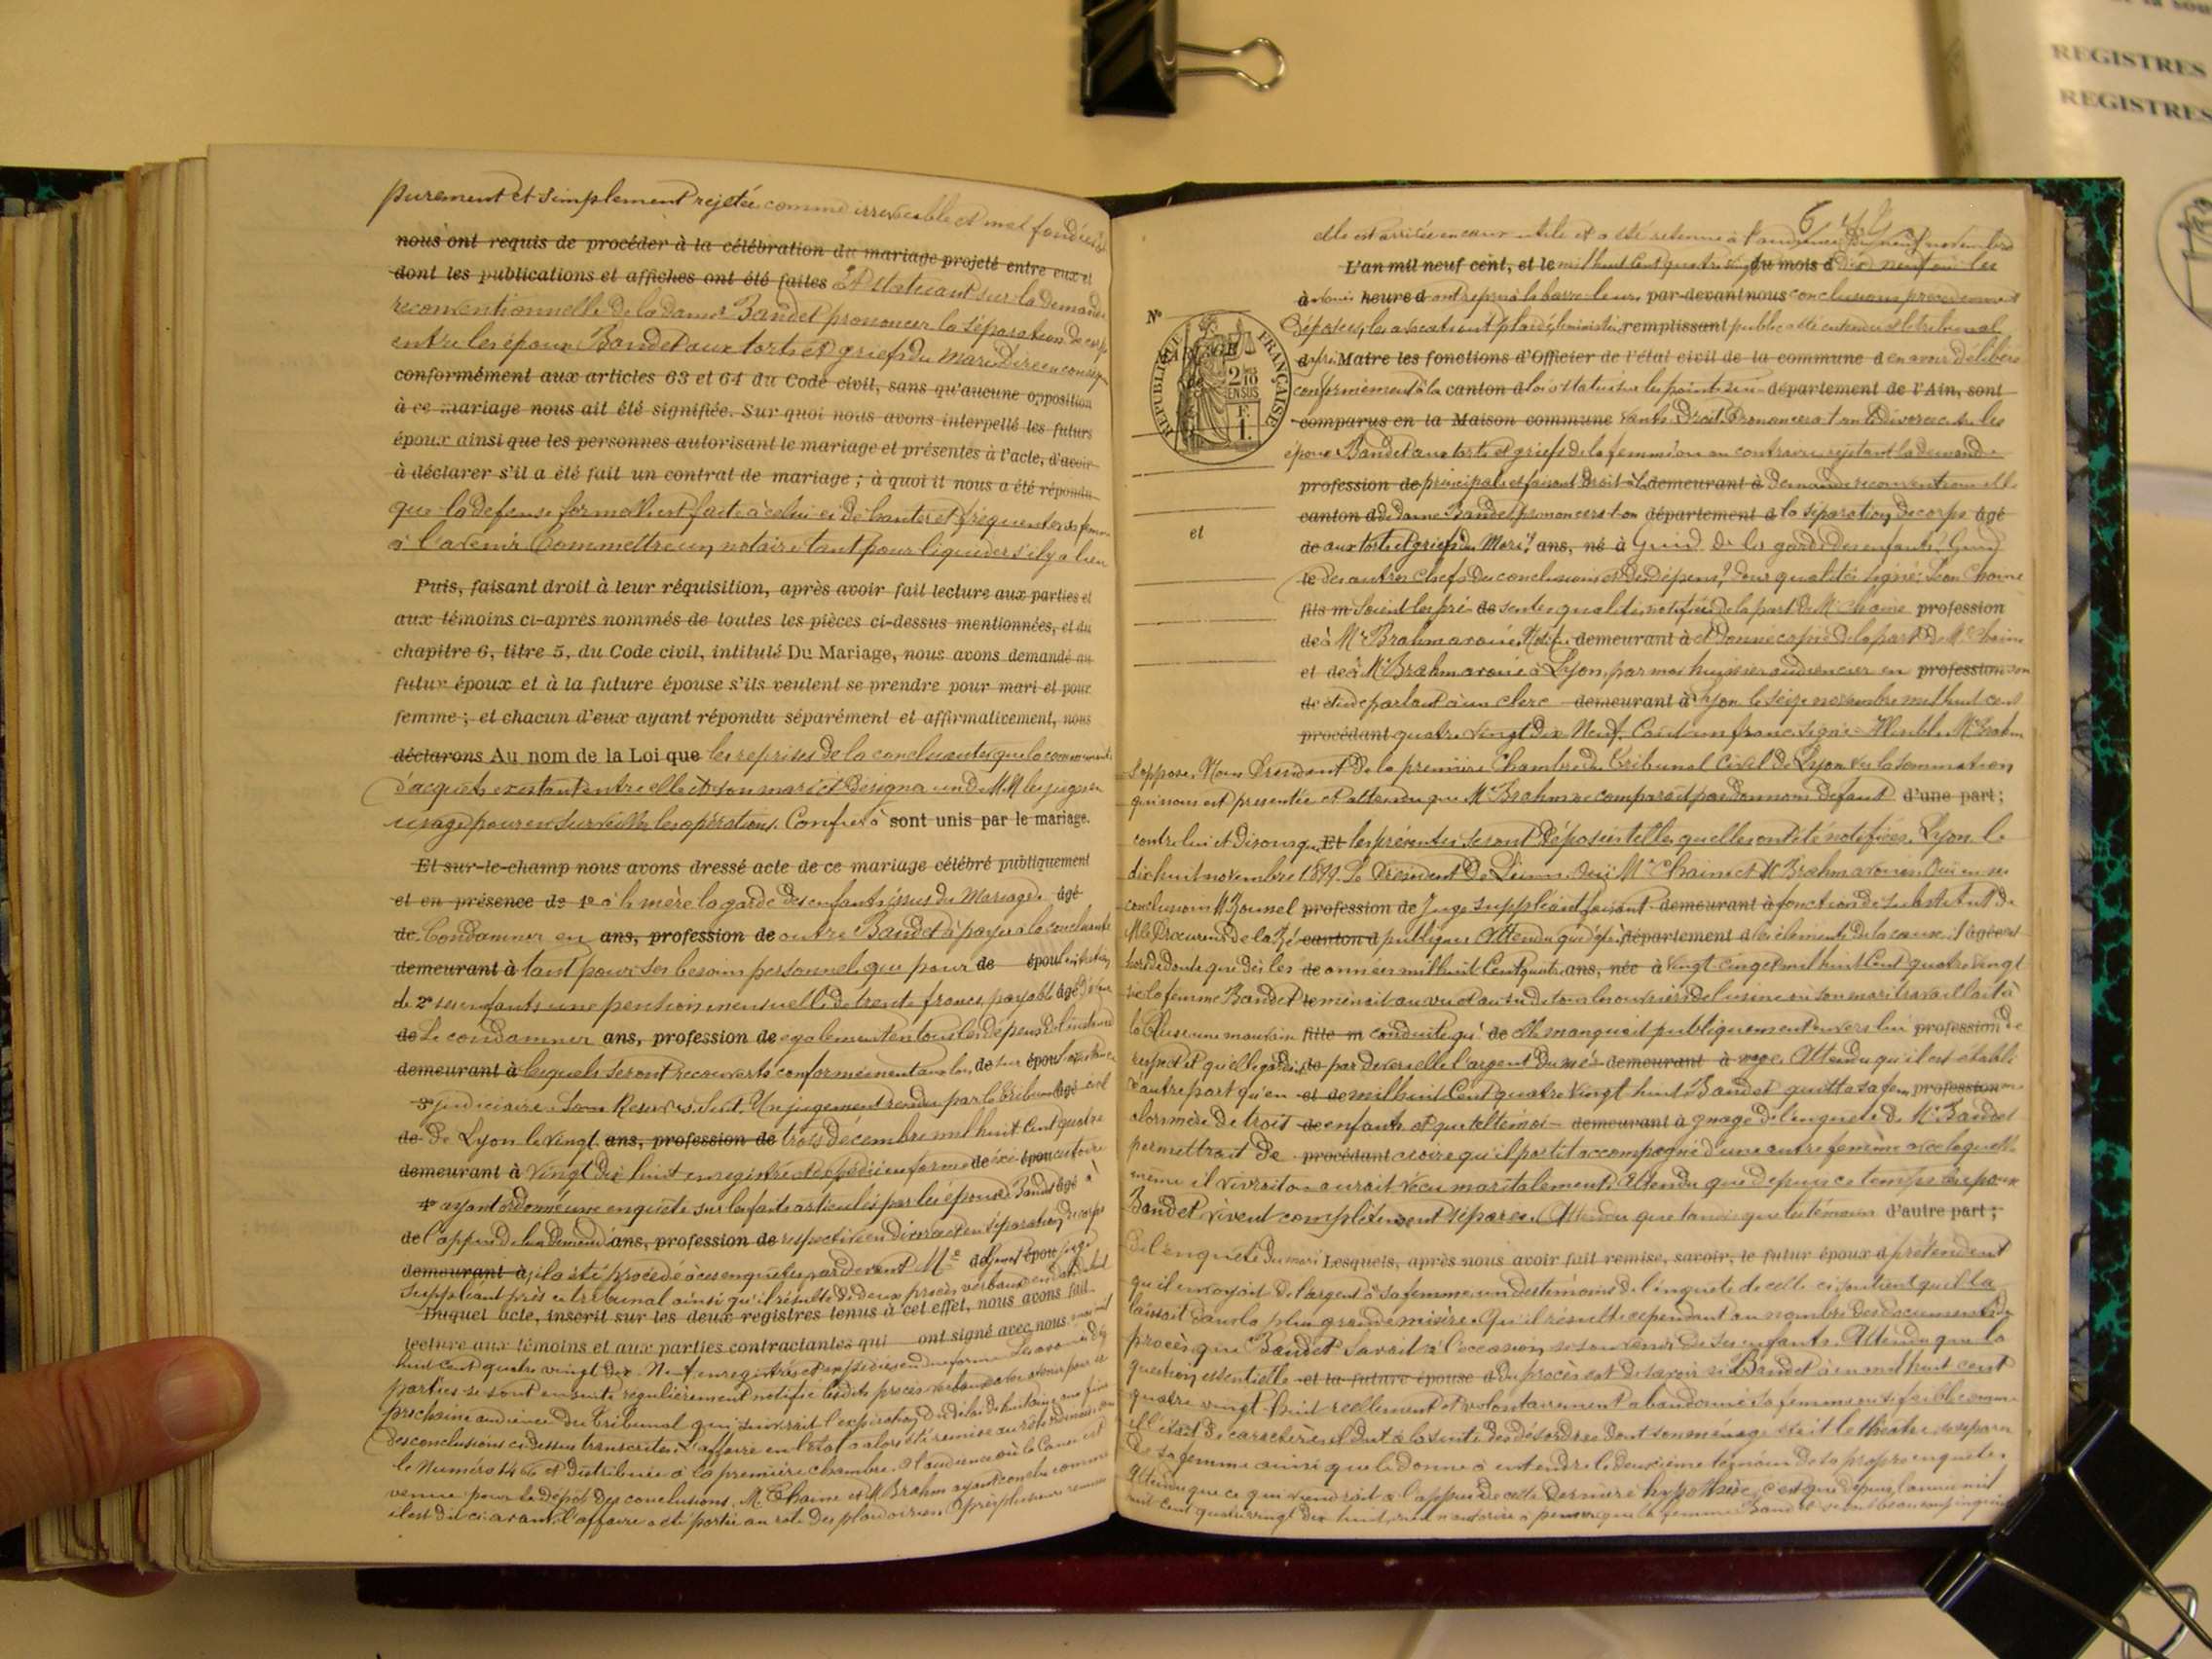 purement et simplement rejetée comme irrecevable et mal fondée
nous ont requis de procéder à la célébration du mariage projeté entre eux et
dont les publications et affiches ont été faites Et statuant sur la demande
reconventionnelle de la dame Bandet prononcer la séparation de corps
entre les époux Bandet aux torts et griefs du mari. Dire en conséq
conformément aux articles 63 et 64 du Code civil, sans qu'aucune opposition
à ce mariage nous ait été signifiée. Sur quoi nous avons interpellé les futurs
époux ainsi que les personnes autorisant le mariage et présentes à l'acte, d'avoir
à déclarer s'il a été fait un contrat de mariage ; à quoi il nous a été répondu
que la defense formelle est faite à celui ci de hanter et fréquenter sa femme
à l'avenir Commettre un notaire tant pour liquider s'il y a lieu
Puis, faisant droit à leur réquisition, après avoir fait lecture aux parties et
aux témoins ci-après nommés de toutes les pièces ci-dessus mentionnées, et du
chapitre 6, titre 5, du Code civil, intitulé Du Mariage, nous avons demandé au
futur époux et à la future épouse s'ils veulent se prendre pour mari et pour
femme ; et chacun d'eux ayant répondu séparément et affirmativement, nous
déclarons Au nom de la Loi que les reprises de la concluante que la communauté
d'acquets existant entre elle et son mari et désigner un de MM les juges
usage pour en surveiller les opérations. Confier à sont unis par le mariage.
Et sur-le-champ nous avons dressé acte de ce mariage célébré publiquement
et en présence de 1° à la mère la garde des enfants issus du mariage âgé
de Condamner en ans, profession de outre Bandet à payer à la concluante
demeurant à tant pour ses besoins personnels que pour de épou
de 2° ses enfants une pension mensuelle de trente francs payable âgé
de Le condamner ans, profession de egalement en tous les dépens de l'instance
demeurant à lesquels seront recouverts conformément aux lois de sur épou
3° judiciaire. Sous Reserves. Suit. Un jugement rendu par le tribunal âgé civil
de de Lyon le vingt ans, profession de trois décembre mil huit cent quatre
demeurant à vingt dix huit enregistré et expédié en forme de éxé épou cutoire
4° ayant ordonné une enquete sur les faits articulés par les époux Bandet âgé à
de l'appui de leur demande ans, profession de respective en divorce et en séparation de corps
demeurant à il a été procédé à ces enquêtes par devant Mr de épou juge
suppléant près ce tribunal ainsi qu'il résulte de deux procès verbaux en date
Duquel acte, inscrit sur les deux registres tenus à cet effet, nous avons fait
lecture aux témoins et aux parties contractantes qui ont signé avec nous
huit cent quatre vingt dix Neuf enregistrés et expédiés en due forme Les avoués des
parties se sont ensuite régulièrement notifié lesdits procès verbaux avec avenir pour la
prochaine audience du tribunal qui suivrait l'expiration du délai de huitaine aux fins
des conclusions ci dessus transcrites. L'affaire en l'état a alors été remise au rôle
le Numéro 1466 et distribuée à la première chambre. A l'audience où la Cause est
venue pour le dépot des conclusions. Me Chaine et Me Brahm ayant conclu comme
il est dit ci avant l'affaire a été portée au role des plaidoiries. Après plusieurs remises
6
elle est arrivée en cour utile et a été retenue à l'audience du neuf novembre
L'an mil neuf cent, et le mil huit cent quatre vingt du mois d dix neuf où les
à avoués heure d ont repris à la barre leurs par-devant nous conclusions précédemment
N°
RÉPUBLIQUE FRANÇAISE
déposées, les avocats ont plaidé, le ministère remplissant public a été entendu et le tribunal
après Maire les fonctions d'Officier de l'état civil de la commune d en avoir délibéré
conformément à la canton d loi a statué sur les points suivants département de l'Ain, sont
comparus en la Maison commune vants. Droit. Prononcera t on le divorce entre les
époux Bandet aux torts et griefs de la femme ou au contraire rejetant la demande
profession de principale et faisant droit à la demeurant à demande reconventionnelle
canton d de dame Bandet prononcera t on département d la séparation de corps âgé
et
de aux torts et griefs du Mari? ans, né à Quid de la garde des enfants? Quid
le des autres chefs des conclusions et des dépens? Pour qualités signé: Léon Chaine
fils m Soient les pré de sentes qualités notifiées de la part de Me Chaine profession
de à Me Brahm avoué. Notifié demeurant à et donné copie de la part de Me Chaine
et de à Me Brahm avoué à Lyon, par moi huissier audiencier en profession son
de étude parlant à un clerc demeurant à Lyon le seize novembre mil huit cent
procédant quatre vingt dix Neuf. Coût un franc. signé: Me Brahm
s'oppose. Nous Président de la première Chambre du Tribunal Civil de Lyon vu la sommation
qui nous est présentée et attendu que Me Brahm ne comparait pas donnons défaut d'une part ;
contre lui et disons que Et les présentes seront déposées telles quelles ont été notifiées. Lyon le
dix huit novembre 1899. Le Président Ouï Me Chaine et Me Brahm avoués. Ouï en ses
conclusions M. profession de Juge suppléant faisant demeurant à fonction de substitut de
M le Procureur de la Ré canton d publique. Attendu que d'après département d les éléments de la cause il âgée est
hors de doute que dès les de années mil huit cent quatre ans, née à vingt cinq et mil huit cent quatre vingt
six la femme Bandet menait au vu et au su de tous les ouvriers de l'usine où son mari travaillait à
la Cluse une mauvaise fille m conduite qu' de elle manquait publiquement envers lui profession de
respect et qu'elle gardait de par devers elle l'argent du mé demeurant à nage. Attendu qu'il est établi
d'autre part qu'en et de mil huit cent quatre vingt huit Bandet quitta sa fem profession me
alors mère de trois de enfants et que le témoi demeurant à gnage de l'enquete de Me Bandet
permettrait de procédant croire qu'il partit accompagné d'une autre femme avec laquelle
même il vivrait ou aurait vécu maritalement. Attendu que depuis ce temps les époux
Bandet vivent complètement séparés. Attendu que tandis que les témoins d'autre part ;
de l'enquete du mari Lesquels, après nous avoir fait remise, savoir, le futur époux d prétendent
qu'il envoyait de l'argent à sa femme, un des témoins de l'enquete de celle ci soutient qu'il la
laissait dans la plus grande misère. Qu'il résulte cependant du nombre des documents du
procès que Bandet savait à l'occasion se souvenir de ses enfants. Attendu que la
question essentielle et la future épouse d du procès est de savoir si Bandet a en mil huit cent
quatre vingt huit reellement et volontairement abandonné sa femme ou si faible comme
il l'était de caractère, il dut à la suite des désordres dont son ménage était le théatre se séparer
de sa femme ainsi que le donne à entendre le deuxième témoin de sa propre enquete.
Attendu que ce qui viendrait à l'appui de cette dernière hypothèse, c'est que depuis l'année mil
huit cent quatre vingt dix huit, rien n'autorise à penser que la femme Bandet se soit beaucoup inquiétée
REGISTRES
REGISTRES